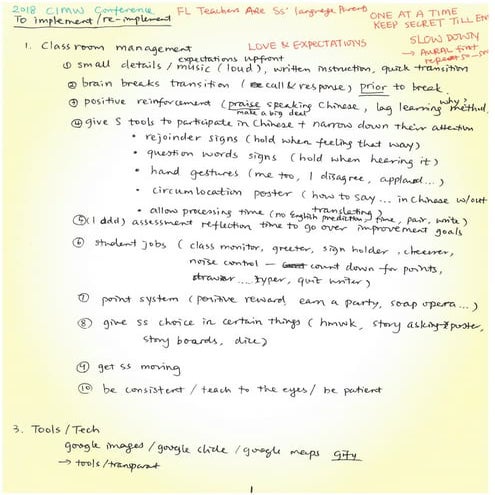 2018 CIMW Conference
FL Teachers Are Ss' language Parents
To implement / re-implement
ONE AT A TIME
KEEP SECRET TILL
SLOW DOWN
→ AURAL first
LOVE & EXPECTATIONS
1. Classroom management
expectations upfront
① small details / music (loud), written instruction, quick transition
② brain breaks transition ( call & response) prior to break
③ positive reinforcement (praise speaking Chinese, lag learning method,
why,
make a big deal
④ give S tools to participate in Chinese + narrow down their attention
• rejoinder signs (hold when feeling that way)
• question words signs (hold when hearing it)
• hand gestures (me too, I disagree, applaud...)
• circumlocation poster (how to say ... in Chinese w/out
translating)
• allow processing time (no English prediction, time, pair, write)
⑤ (I add) assessment reflection time to go over improvement goals
⑥ student jobs (class monitor, greeter, sign holder, cheerer,
noise control — count down for points,
drawer ... typer, quit writer)
⑦ point system (positive reward earn a party, soap opera...)
⑧ give ss choice in certain things (hmwk, story asking poster,
story boards, dice)
⑨ get ss moving
⑩ be consistent / teach to the eyes / be patient
3. Tools / Tech
google images / google slide / google maps
→ tools / transparat
1